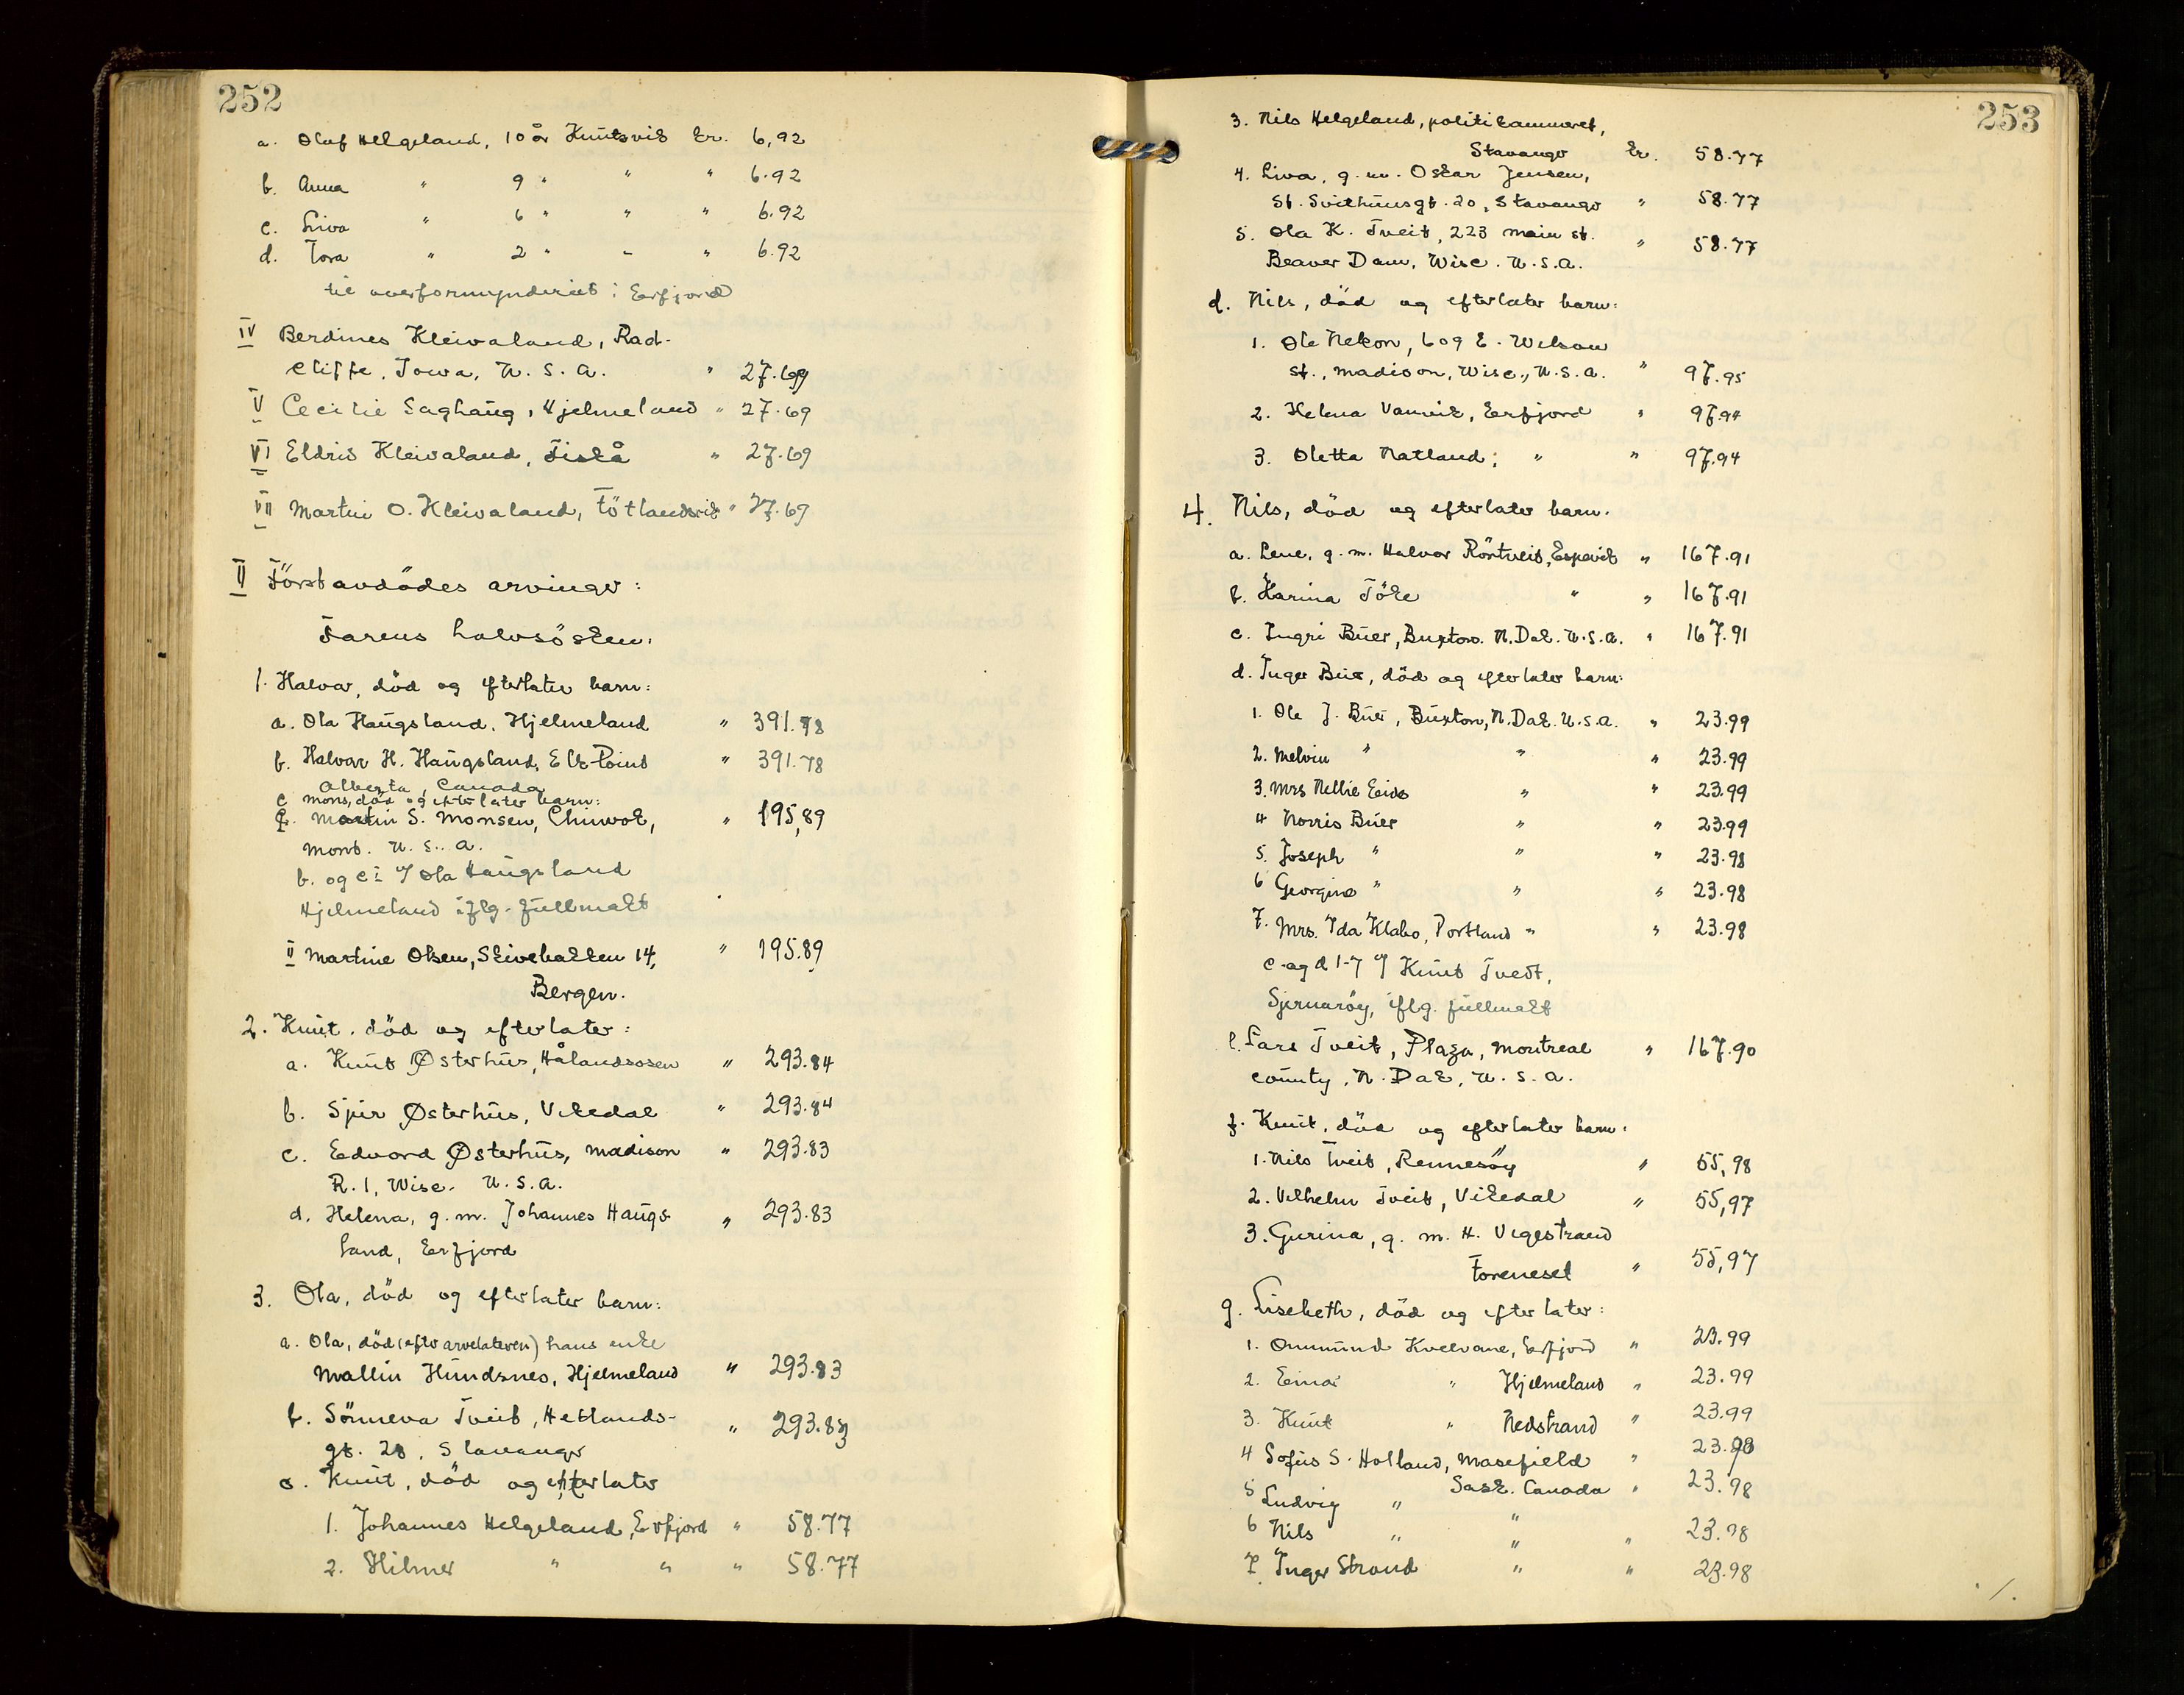 252
a. Olaf Helgeland, 10 år Knutsvik kr. 6,92
b. Anna " 9 " " " 6.92
c. Liva " 6 " " " 6.92
d. Tora " 2 " " " 6.92
til overformynderiet i Erfjord
IV Berdines Kleivaland, Rad-
cliffe, Iowa, U.S.A. " 27.69
V Cecilie Saghaug, Hjelmeland " 27.69
VI Eldris Kleivaland, Fiskå " 27.69
VII Martin O. Kleivaland, Føtlandsvik " 27.69
II Förstavdödes arvinger:
Farens halvsösken:
1. Halvor, död og efterlater barn:
a. Ola Haugsland, Hjelmeland " 391.78
b. Halvor H. Haugsland, Elk Point " 391.78
Alberta, Canada
c Mons, död og efterlater barn:
I. Martin S. Monsen, Chinook, " 195,89
Mont. U.S.A.
b. og c I v/ Ola Haugsland
Hjelmeland iflg. fullmakt
II Martine Olsen, Skivebakken 14, " 195.89
Bergen.
2. Knut, död og efterlater:
a. Knut Østerhus, Hålandsosen " 293.84
b. Sjur Østerhus, Vikedal " 293.84
c. Edvard Østerhus, Madison " 293.83
R.1, Wisc. U.S.A.
d. Helena, g.m. Johannes Haugs- " 293.83
land, Erfjord
3. Ola, död og efterlater barn:
a. Ola, död (efter arvelateren) hans enke
Mallin Hundsnes, Hjelmeland " 293.83
b. Sönneva Tveit, Hetlands- " 293.83
gt. 28, Stavanger
c. Knut, död og efterlater
1. Johannes Helgeland, Erfjord " 58.77
2. Hilmer " " " 58.77
253
3. Nils Helgeland, politikammeret,
Stavanger kr. 58.77
4. Liva, g.m. Oskar Jensen,
St. Svithunsgt. 20, Stavanger " 58.77
5. Ola K. Tveit, 223 Main st. " 58.77
Beaver Dam, Wisc. U.S.A.
d. Nils, död og efterlater barn:
1. Ole Nelson, 609 E. Wilson
st., Madison, Wisc., U.S.A. " 97.95
2. Helena Vanvik, Erfjord " 97.94
3. Oletta Natland, " " 97.94
4. Nils, död og efterlater barn.
a. Lene, g.m. Halvor Röntveit, Espevik " 167.91
b. Karina Töke " " 167.91
c. Ingri Buer, Buxton. N.Dak. U.S.A. " 167.91
d. Inger Buer, död og efterlater barn:
1. Ole J. Buer, Buxton, N.Dak. U.S.A. " 23.99
2. Melvin " " " 23.99
3. Mrs Nellie Eide " " 23.99
4 Norris Buer " " 23.99
5. Joseph " " " 23.98
6 Georgine " " " 23.98
7. Mrs. Ida Klabo, Portland " " 23.98
c. og d 1-7 v/ Knut Tvedt,
Sjernaröy, iflg. fullmakt
e. Lars Tveit, Plaza, Montreal " 167.90
county, N.Dak, U.S.A.
f. Knut, död og efterlater barn:
1. Nils Tveit, Rennesöy " 55,98
2. Vilhelm Tveit, Vikedal " 55,97
3. Gurina, g.m. H. Vegestrand
Foreneset " 55,97
g. Lisebeth, död og efterlater:
1. Ommund Kvelvane, Erfjord " 23.99
2. Einar " Hjelmeland " 23.99
3. Knut " Nedstrand " 23.99
4 Sofus S. Holland, Masefield " 23.98
5 Ludvig " Sask. Canada " 23.98
6 Nils " " " 23.98
7. Inger Strand " " 23.98
./.